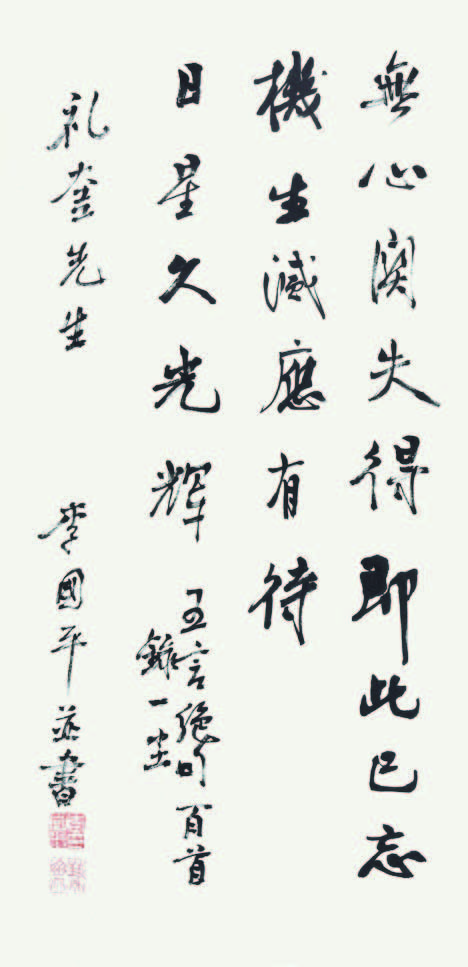 無心関失得即此已忘
機生滅應有待
日星久光輝
五言絶句百首
錄一
礼奎先生
李國平並書